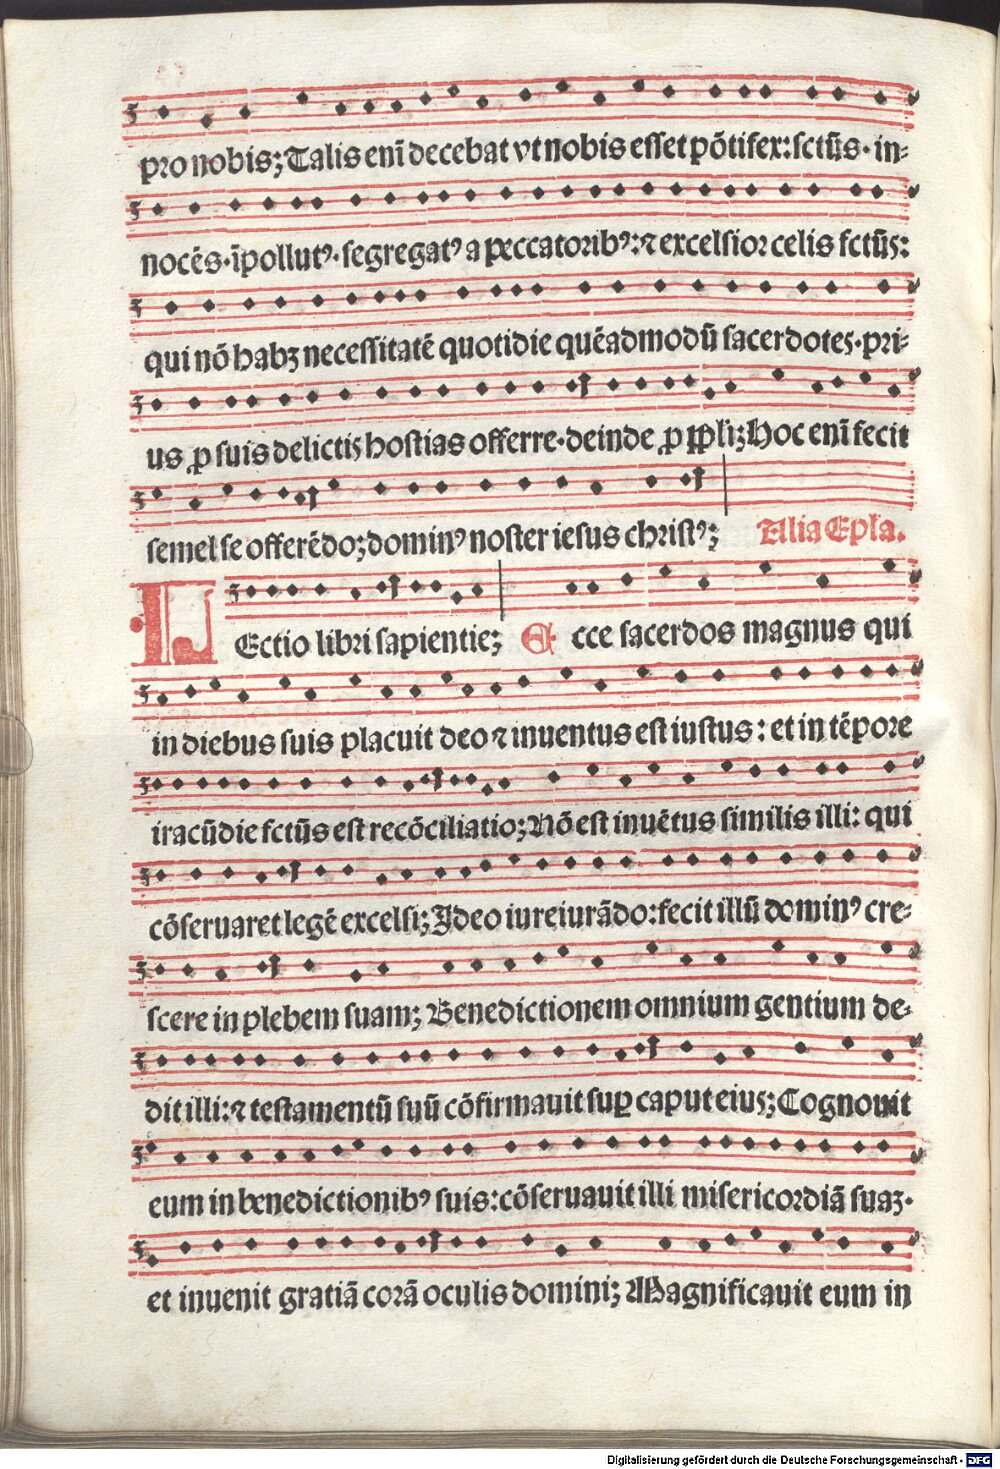 pro nobis; Talis enī decebat vt nobis esset pōtifex: sctūs · in⸗
nocēs · īpollutꝰ · segregatꝰ a peccatoribꝰ: ⁊ excelsior celis sctūs:
qui nō habꝫ necessitatē quotidie quēadmodū sacerdotes · pri⸗
us ꝓ suis delictis hostias offerre · deinde ꝓ ppl'i; Hoc enī fecit
semel se offerēdo; dominꝰ noster iesus christꝰ; Alia Epl'a.
LEctio libri sapientie; Ecce sacerdos magnus qui
in diebus suis placuit deo ⁊ inuentus est iustus: et in tēpore
iracūdie sctūs est recōciliatio; Nō est inuētus similis illi: qui
cōseruaret legē excelsi; Ideo iureiurādo: fecit illū dominꝰ cre⸗
scere in plebem suam; Benedictionem omnium gentium de⸗
dit illi: ⁊ testamentū suū cōfirmauit suꝑ caput eius; Cognouit
eum in benedictionibꝰ suis: cōseruauit illi misericordiā suaꝫ ·
et inuenit gratiā corā oculis domini; Magnificauit eum in
Digitalisierung gefördert durch die Deutsche Forschungsgemeinschaft - DFG